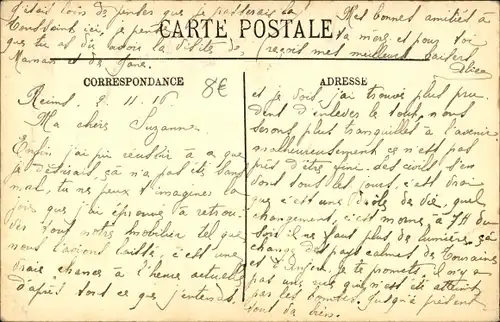 CARTE POSTALE
CORRESPONDANCE
8€
Reims 2. 11. 16.
Ma chère Suzanne.
Enfin j'ai pu réussir à ce que
je désirais, ça n'a pas été sans
mal, tu ne peux t'imaginer la
joie que j'ai éprouvé à retrou-
ver tout notre mobilier tel que
nous l'avions laissé, c'est une
vraie chance à l'heure actuelle
d'après tout ce que j'entends.
ADRESSE
et je sais j'ai trouvé plus pru-
dent d'enlever le tout, nous
serons plus tranquilles à l'avenir
malheureusement ce n'est pas
près d'être fini. des civils s'en
vont tous les jours, c'est vrai
que c'est une drôle de vie, quel
changement, c'est morne à 7H du
soir il ne faut plus de lumière, ça
change des pays calmes de Touraine
et d'Anjou. Je te promets il n'y a
pas une rue qui n'est été atteint
par les bombes. Jusqu'à présent
tout va bien.
J'étais loin de penser que je passerais la
Toussaint ici, je pense
que tu as dû avoir la visite de
Maman et de
Mes bonnes amitiés à
ta mère et pour toi
reçois mes meilleurs baisers